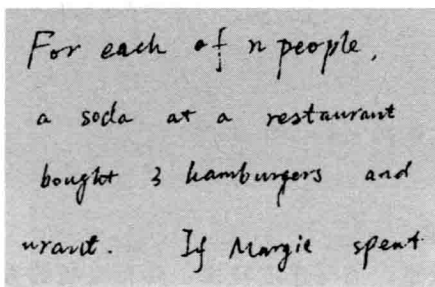 For each of n people,
a soda at a restaurant
bought 3 hamburgers and
urant. If Margie spent